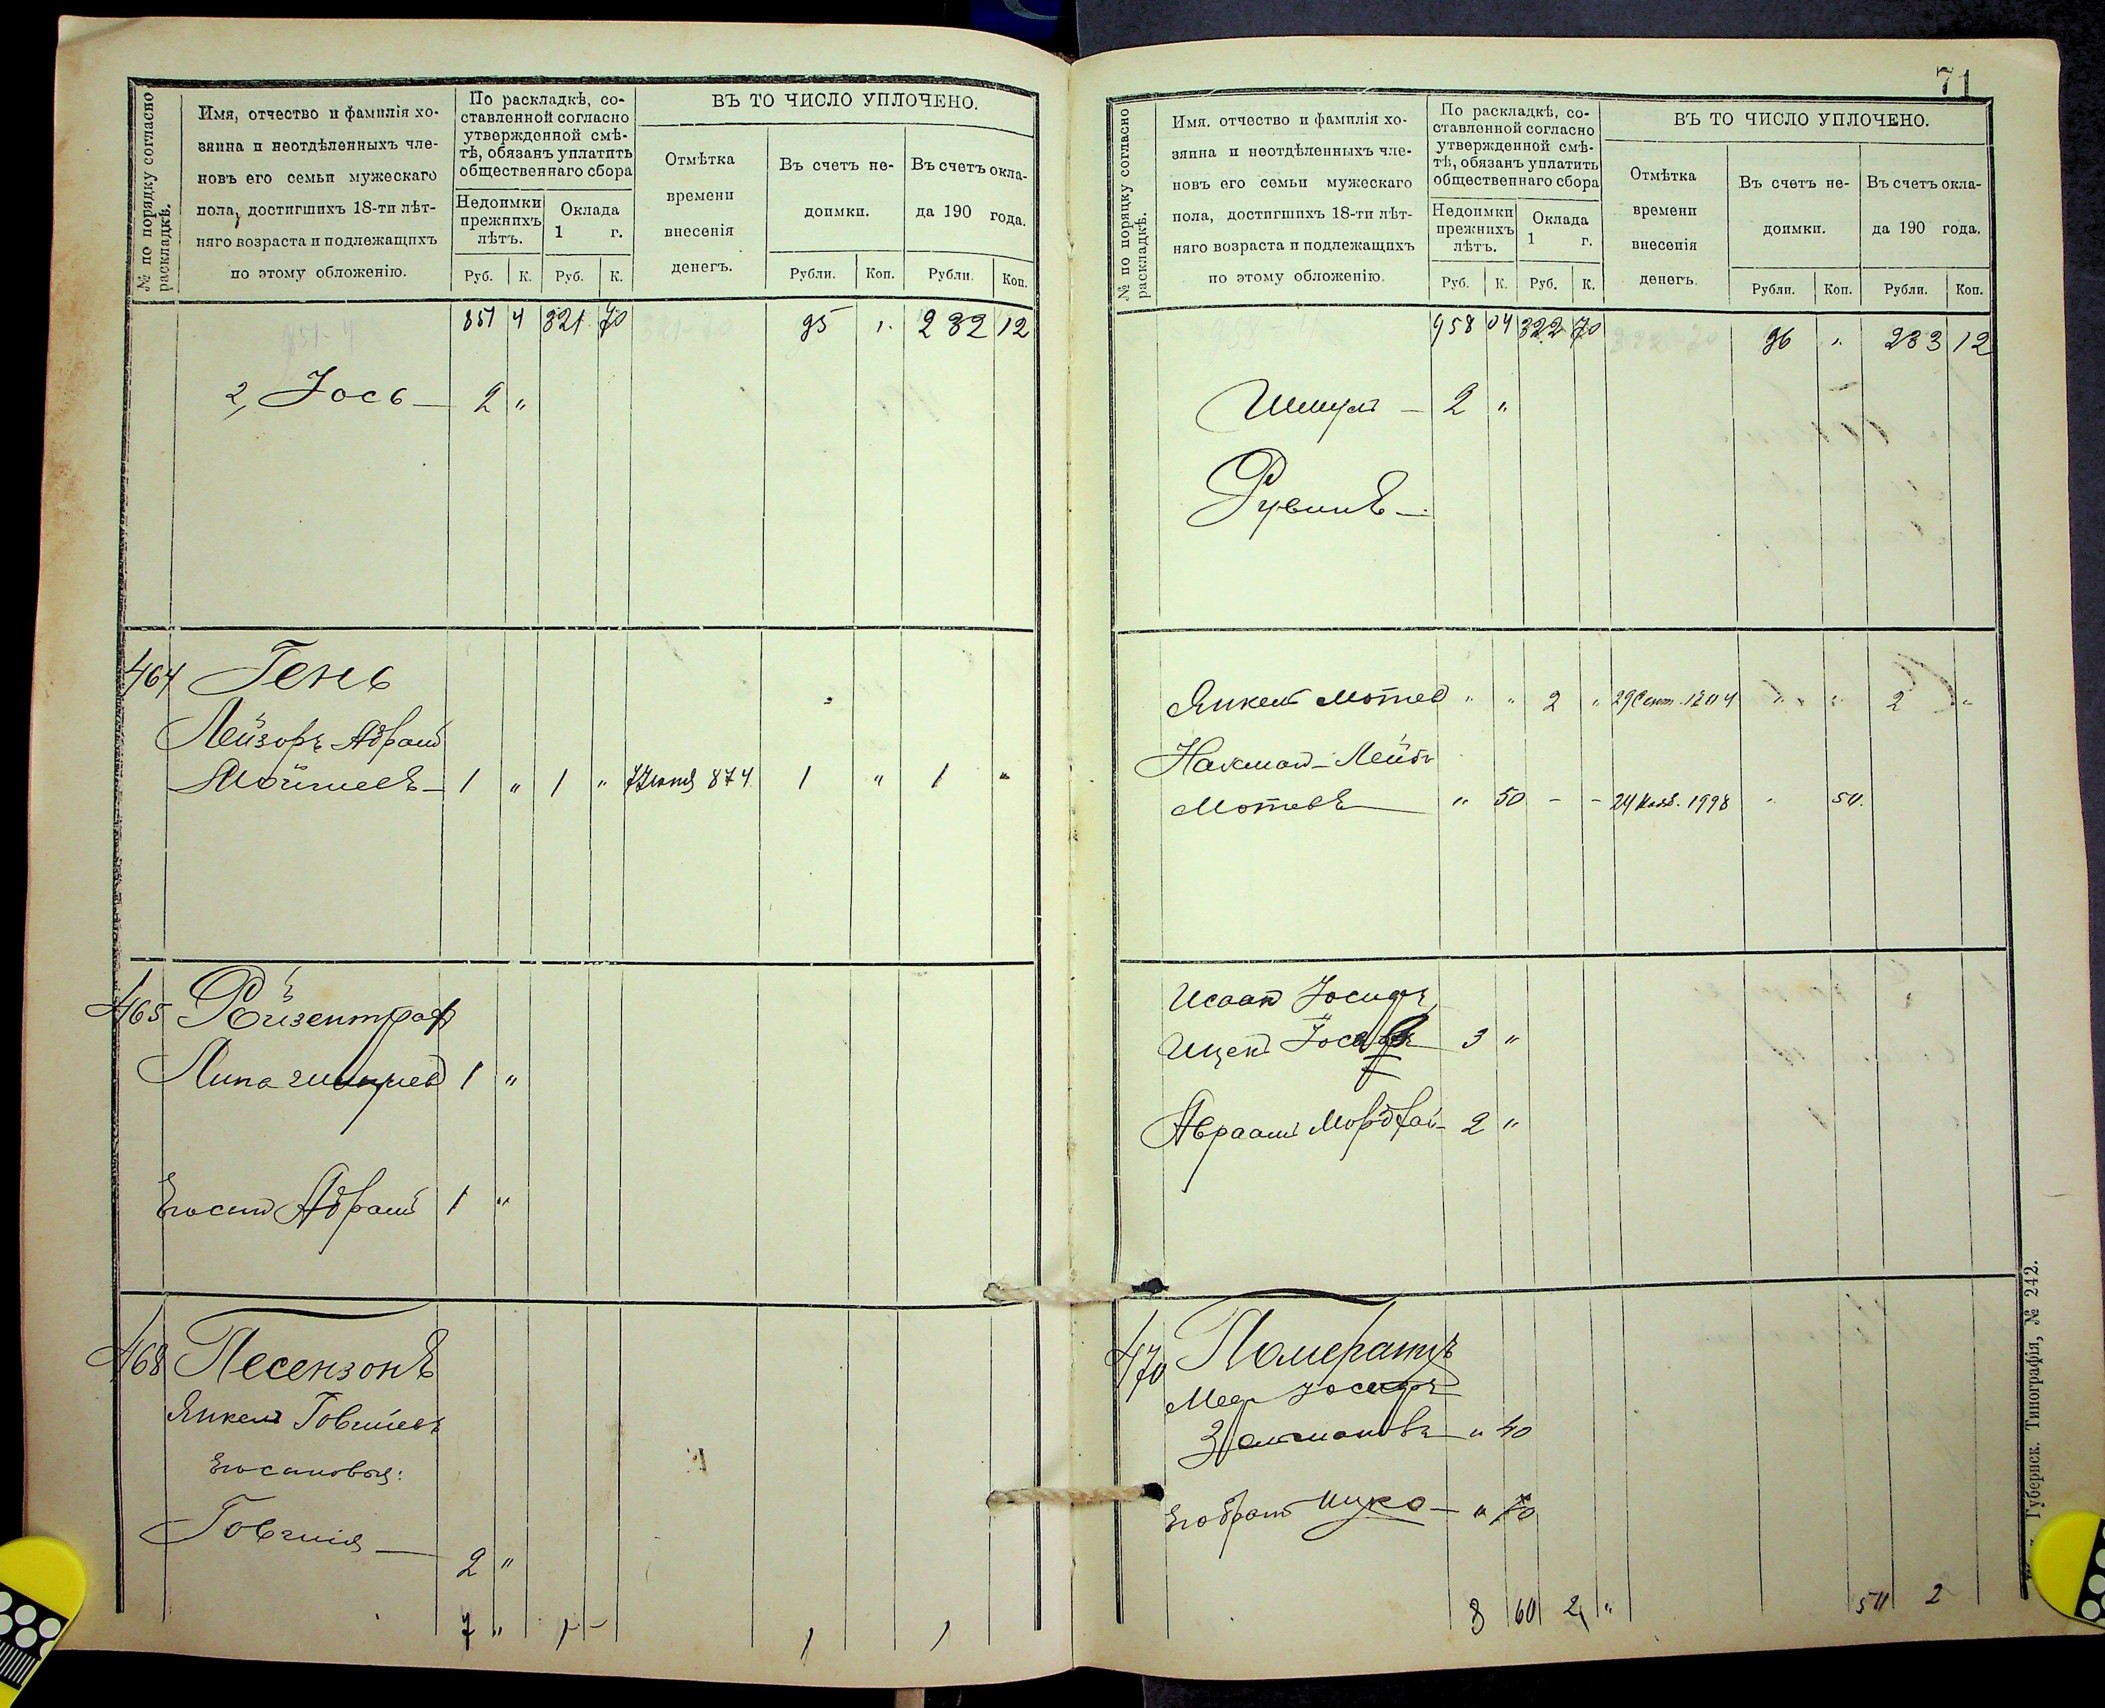 № по порядку согласно раскладкѣ.
Имя, отчество и фамилія хо-
зяина и неотдѣленныхъ чле-
новъ его семьи мужескаго
пола, достигшихъ 18-ти лѣт-
няго возраста и подлежащихъ
по этому обложенію.
По раскладкѣ, со-
ставленной согласно
утвержденной смѣ-
тѣ, обязанъ уплатить
общественнаго сбора
Недоимки
прежнихъ
лѣтъ.
Оклада
1 г.
Руб. К. Руб. К.
ВЪ ТО ЧИСЛО УПЛОЧЕНО.
Отмѣтка
времени
внесенія
денегъ.
Въ счетъ не-
доимки.
Въ счетъ окла-
да 190 года.
Рубли. Коп. Рубли. Коп.
951 4 321 70 95 „ 232 12
2, Іось — 2 „
464 Гень
Лейзоръ Абрамъ
Мойшевъ — 1 „ 1 „ 1 „ 1 „
465 Ройзентрафъ
Липа 1 „
Его сынъ Абрамъ 1 „
468 Песензонъ
Янкель Говшіевъ
Его сыновья:
Говшія — 2 „
7 „ 1 - 1 1
71
№ по порядку согласно раскладкѣ.
Имя, отчество и фамилія хо-
зяина и неотдѣленныхъ чле-
новъ его семьи мужескаго
пола, достигшихъ 18-ти лѣт-
няго возраста и подлежащихъ
по этому обложенію.
По раскладкѣ, со-
ставленной согласно
утвержденной смѣ-
тѣ, обязанъ уплатить
общественнаго сбора
Недоимки
прежнихъ
лѣтъ.
Оклада
1 г.
Руб. К. Руб. К.
ВЪ ТО ЧИСЛО УПЛОЧЕНО.
Отмѣтка
времени
внесенія
денегъ.
Въ счетъ не-
доимки.
Въ счетъ окла-
да 190 года.
Рубли. Коп. Рубли. Коп.
958 04 322 70 96 „ 233 12
Шмуль — 2 „
Рувинъ —
Янкель Мотев „ „ 2 „ 29 Сент. „ „ 2 „
Нахман-Лейб
Мотевъ „ 50 - - 24 „ 50.
Исаак
Ицекъ 3 „
Авраамъ Мордхай — 2 „
470 Померанцъ
Залмановъ „ 40
Его братъ Ицко — „ 70
8 60 2 „ 50 2
Губернск. Типографія, № 242.